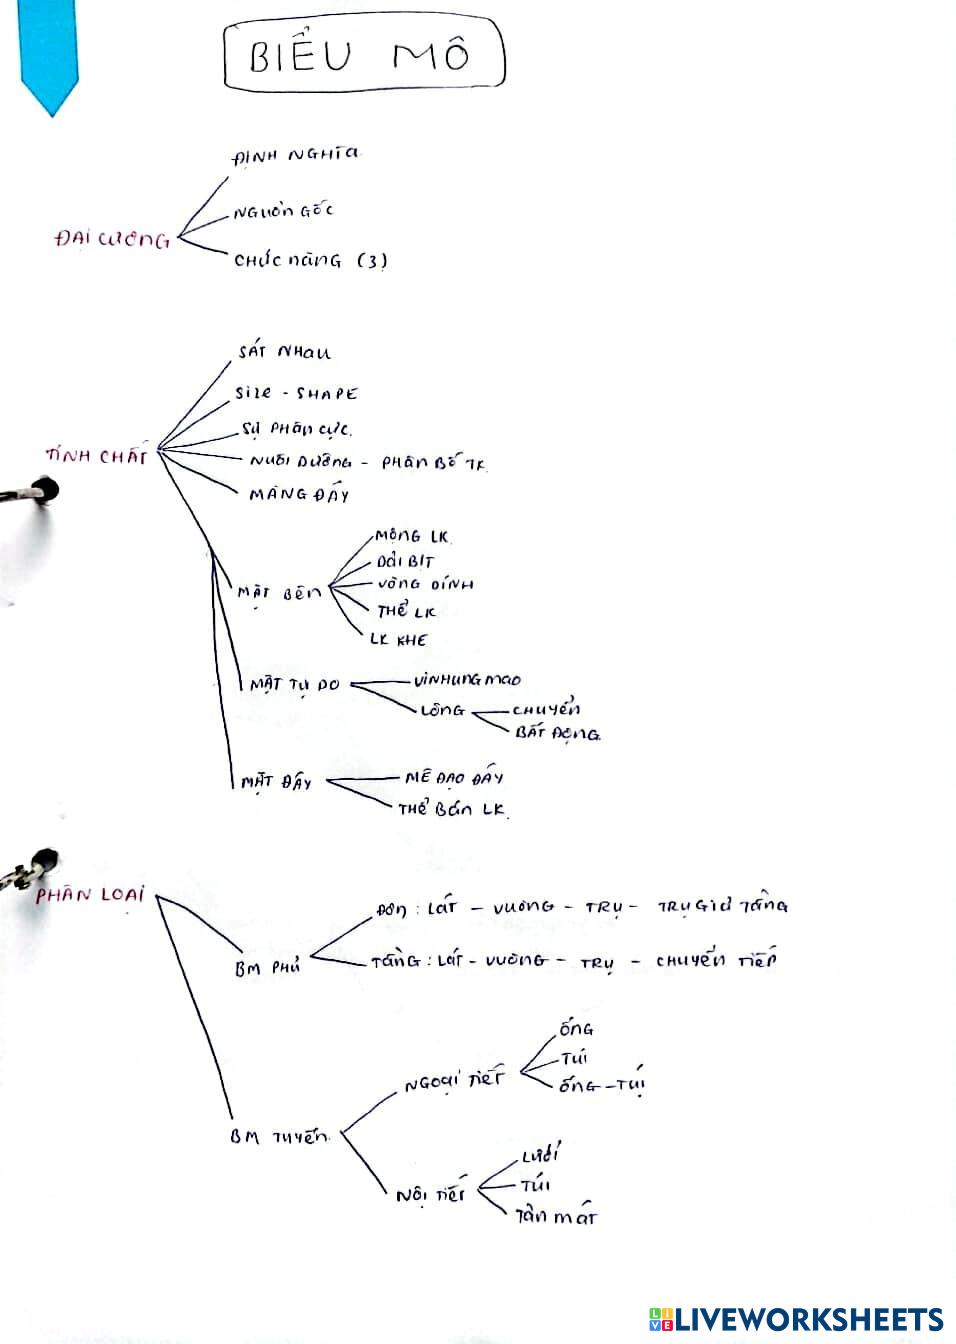 BIỂU MÔ
ĐỊNH NGHĨA
NGUỒN GỐC
ĐẠI CƯƠNG
CHỨC NĂNG (3)
SÁT NHAU
SIZE - SHAPE
SỰ PHÂN CỰC.
TÍNH CHẤT
NUÔI DƯỠNG - PHÂN BỐ TK
MÀNG ĐÁY
MỘNG LK
DẢI BỊT
VÒNG DÍNH
MẶT BÊN
THỂ LK
LK KHE
VI NHUNG MAO
MẶT TỰ DO
LÔNG
CHUYỂN
BẤT ĐỘNG
MẶT ĐÁY
MÊ ĐẠO ĐÁY
THỂ BÁN LK
PHÂN LOẠI
ĐƠN : LÁT - VUÔNG - TRỤ - TRỤ GIẢ TẦNG
BM PHỦ
TẦNG : LÁT - VUÔNG - TRỤ - CHUYỂN TIẾP
ỐNG
TÚI
NGOẠI TIẾT
ỐNG - TÚI
BM TUYẾN
LƯỚI
TÚI
NỘI TIẾT
TẢN MÁT
LIVEWORKSHEETS